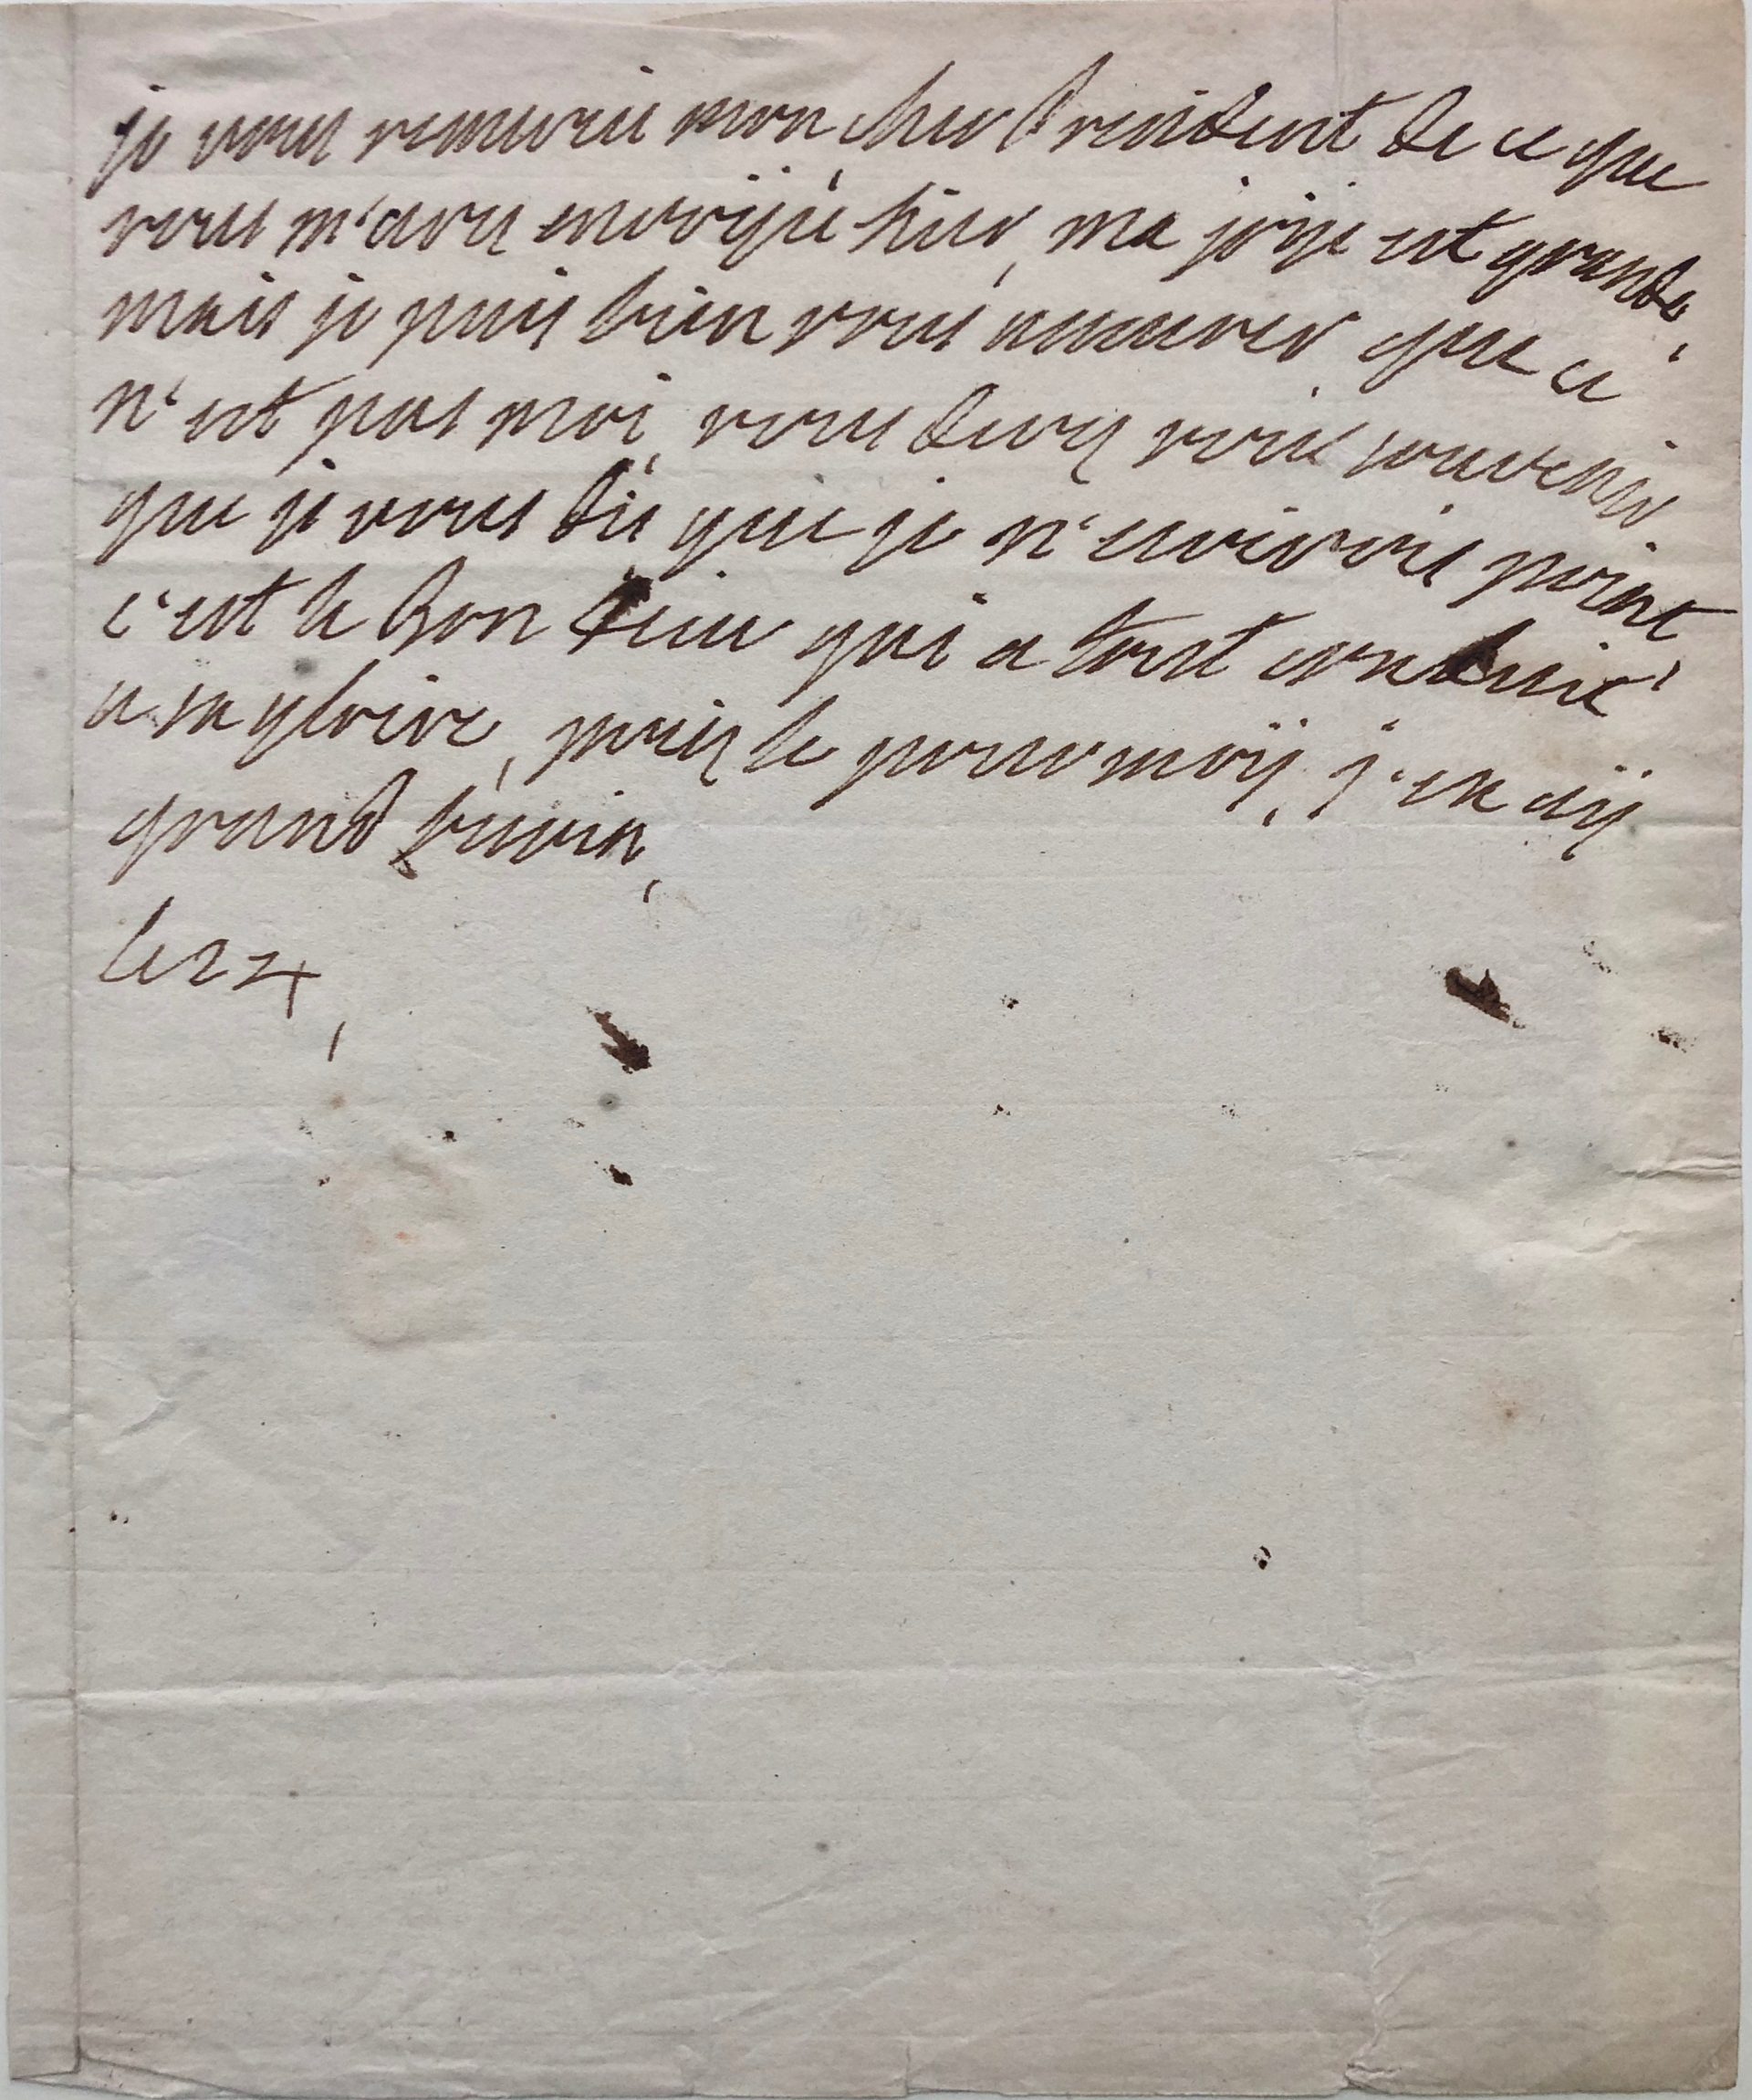 je vous remercie mon cher President de ce que
vous m'avez envoÿé hier, ma joÿe est grande,
mais je puis bien vous assurer que ce
n'est pas moi, vous devez vous souvenir
que je vous dit que je n'écrirois point
c'est le bon Dieu qui a tout conduit
a sa gloire, priez le pour moÿ, j'en aÿ
grand besoin,
le 24,